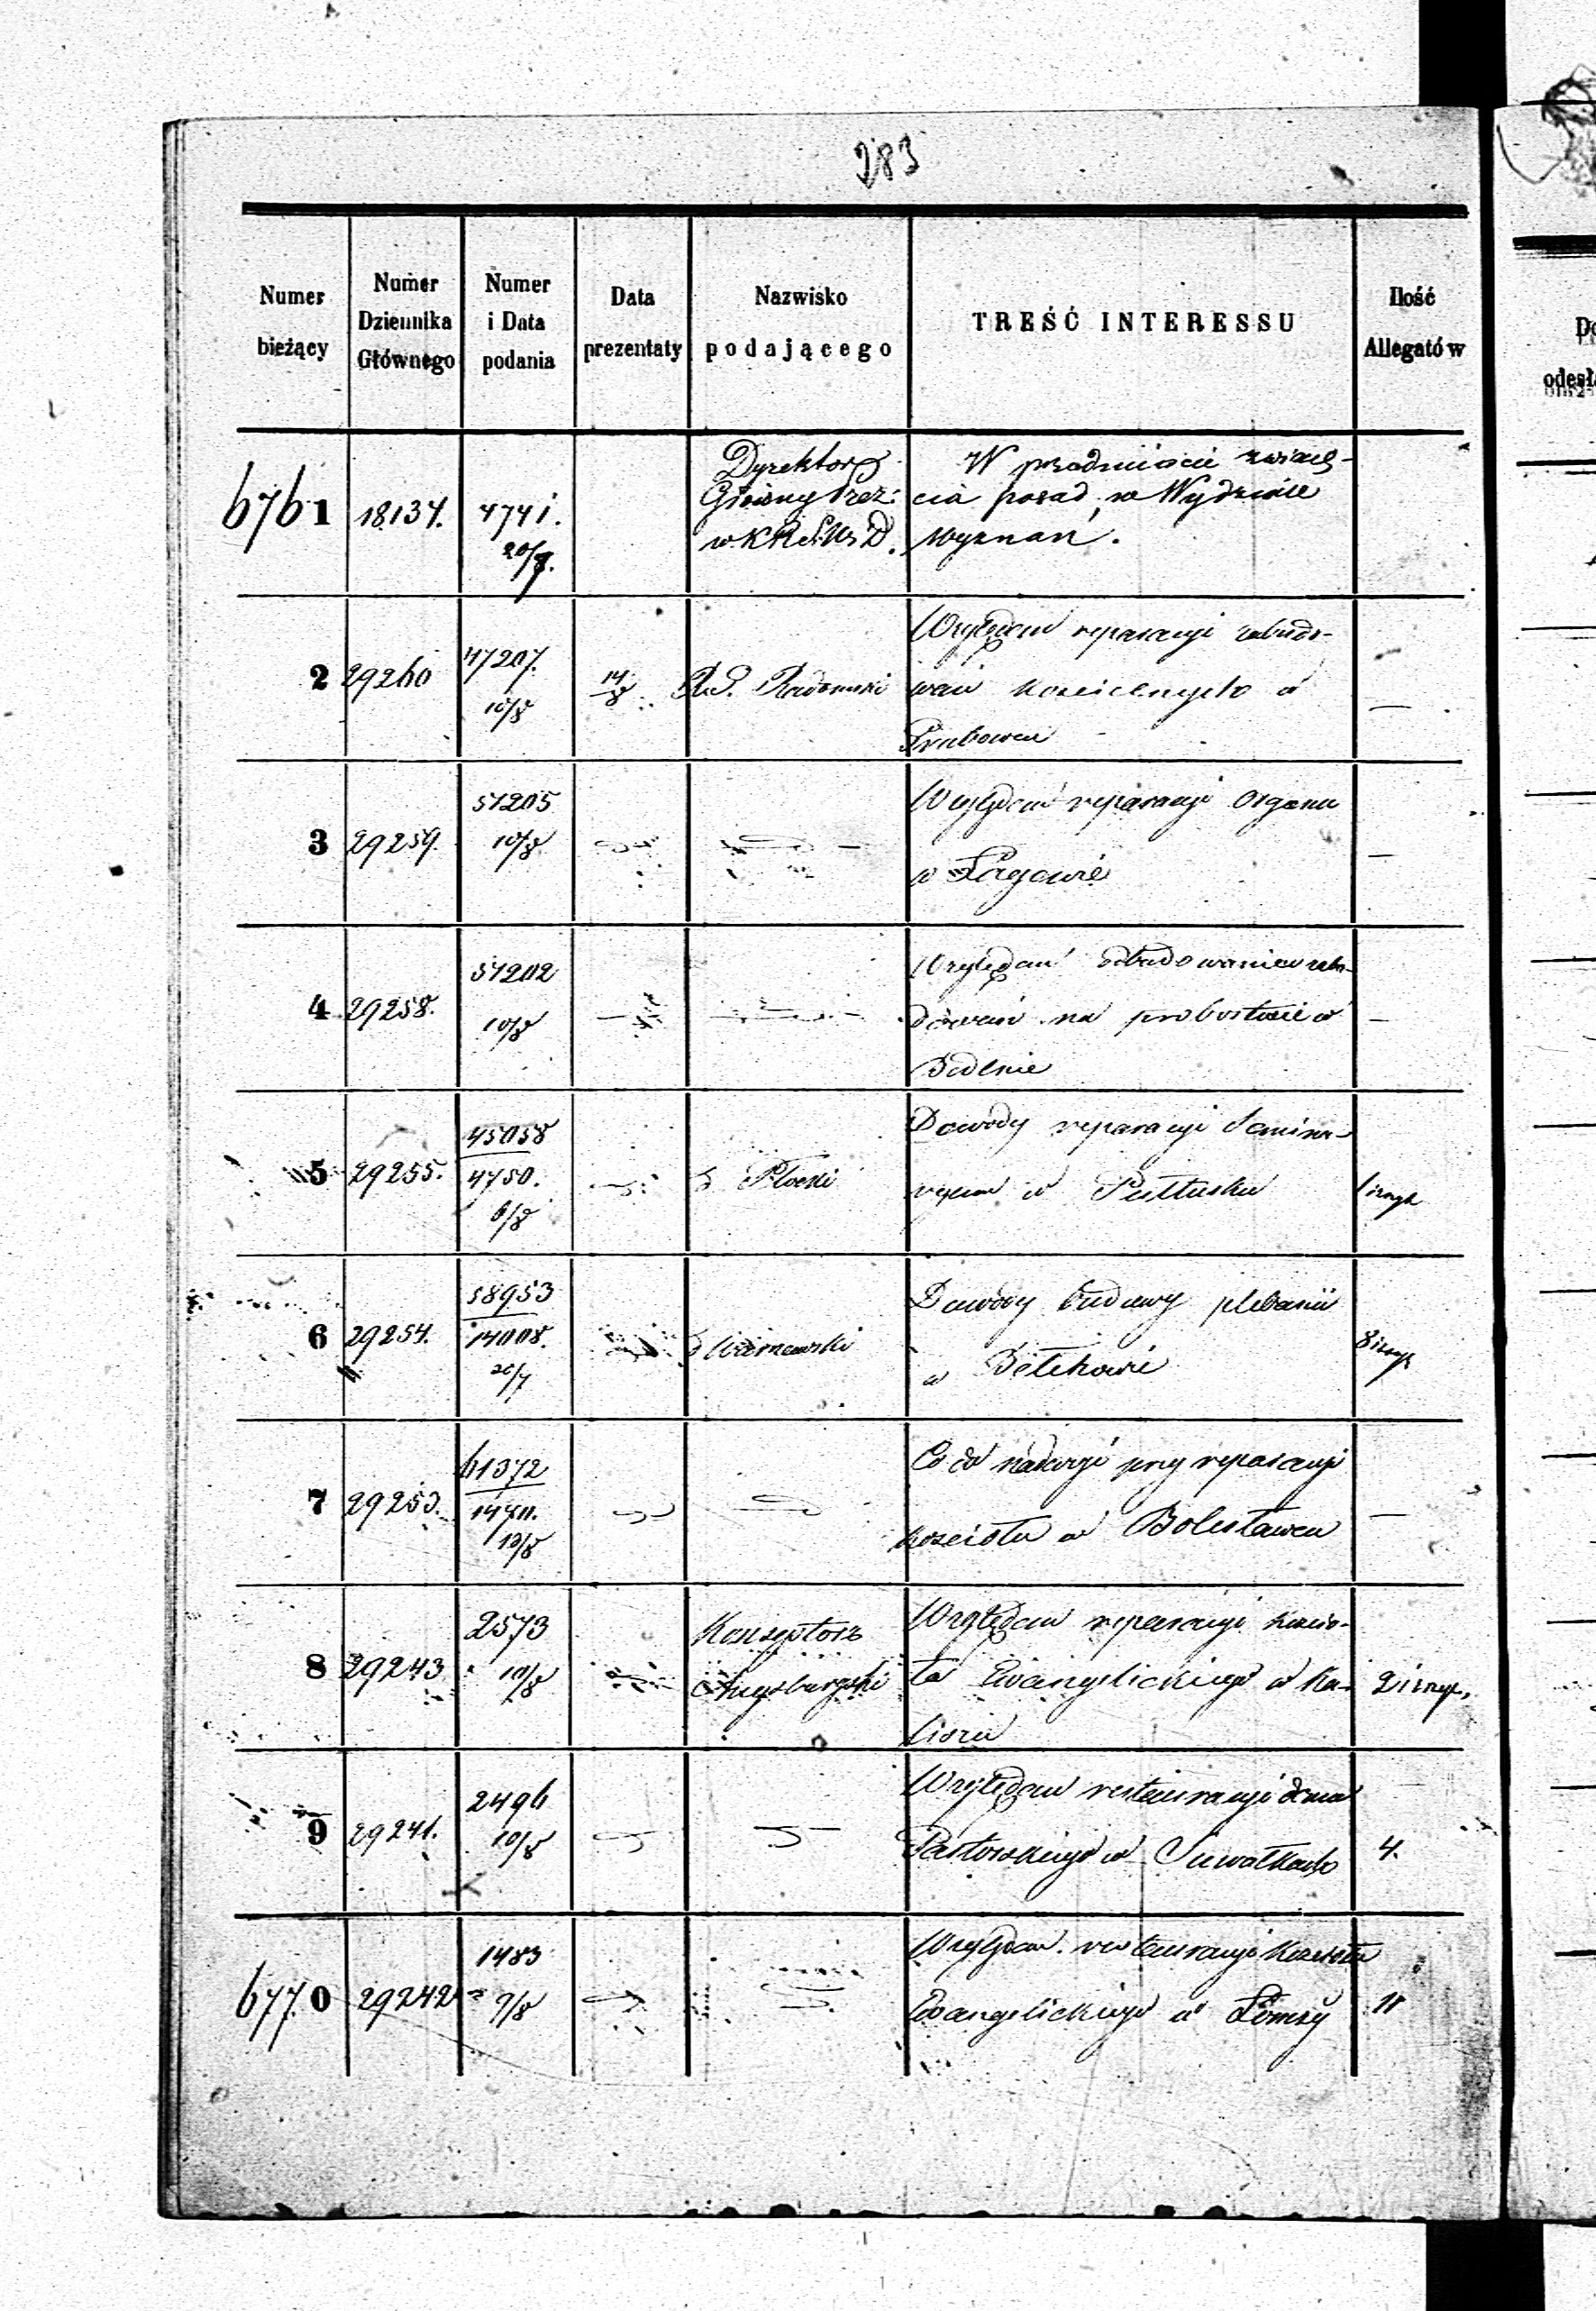 283
Numer bieżący
Numer Dziennika Głównego
Numer i Data podania
Data prezentaty
Nazwisko podającego
TREŚĆ INTERESSU
Ilość Allegatów
6761 18134. 4741. 20/7.
Dyrektor
Główny Prez:
w K R S W D.
W przedmiocie zwinię-
cia posad, w Wydziale
Wyznań.
2 29260 47207. 10/8 14/8 R. Radomski
Względem reparacyi zabudo-
wań kościelnych w
3 29259. 51205 10/8
Względem reparacyi organu
w Łagowie
4 29258. 51202 10/8
Względem
na probostwie w
Bedlnie
5 29255. 45058 4750. 6/8 Płocki
Dowody reparacyi Semina-
ryum w Pułtusku
6 29254. 58953 14008. 20/7
Dowody budowy plebanii
w Bełchowie
7 29253. 61372 13/8
Co do przy reparacyi
kościoła w Bolesławcu
8 29243 2573 10/8
Konsystorz
Augsburgski
Względem reparacyi kościo-
ła Ewangelickiego w Ka-
liszu
9 29241. 2496 10/8
Względem restauracyi domu
Pastorskiego w Suwałkach
4.
6770 29242 1483 9/8
Względem restauracyi Kościoła
Ewangelickiego w Łomży
11